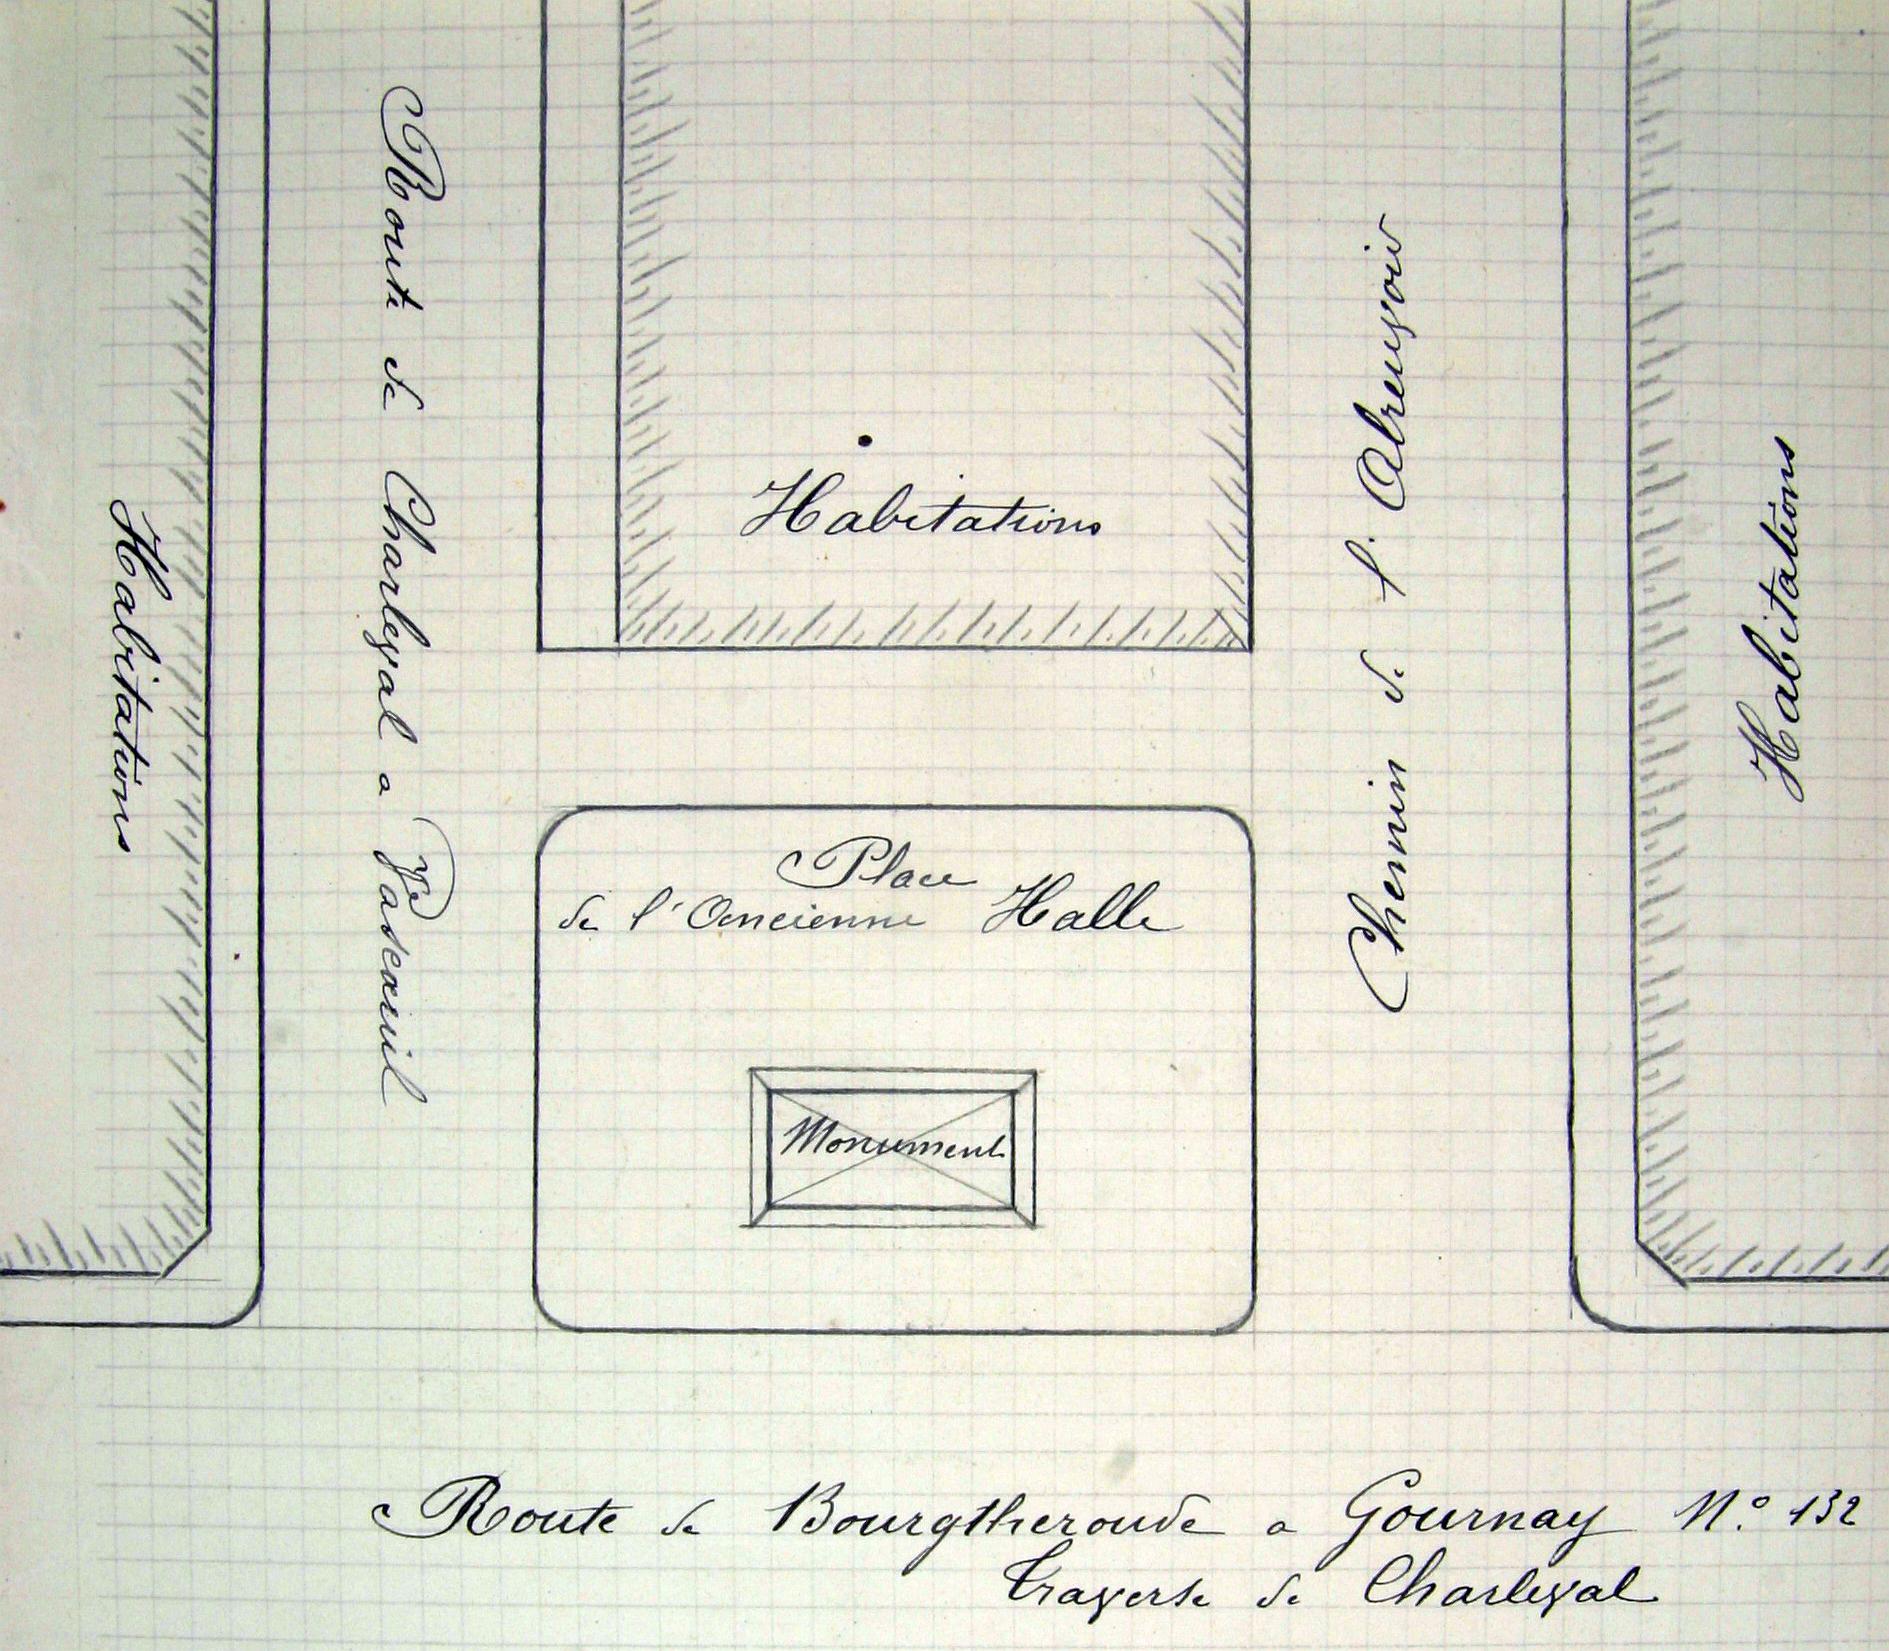 Habitations
Route de Charleval a Vascœuil
Habitations
Chemin de l'Abreuvoir
Habitations
Place
de l'Ancienne Halle
Monument
Route de Bourgtheroude a Gournay N.° 132
Traverse de Charleval